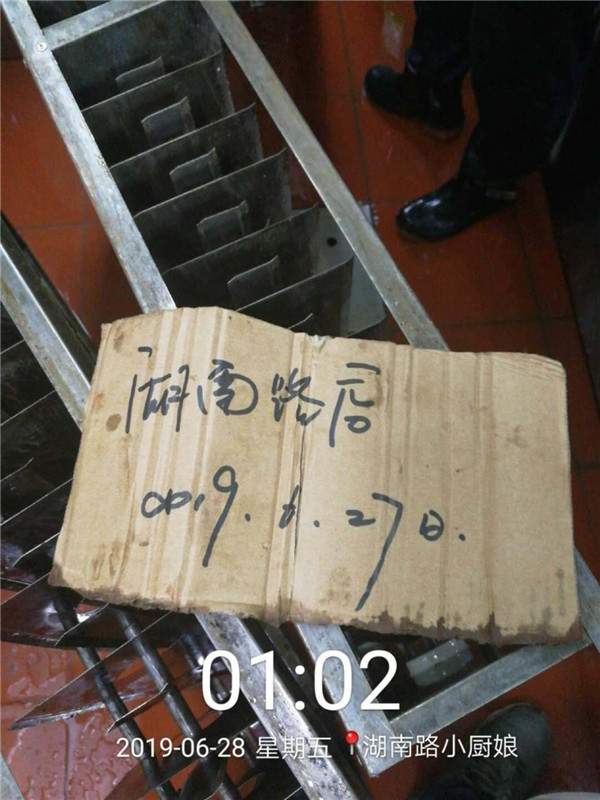 湖南路店
2019.6.27日.
01:02
2019-06-28 星期五 湖南路小厨娘